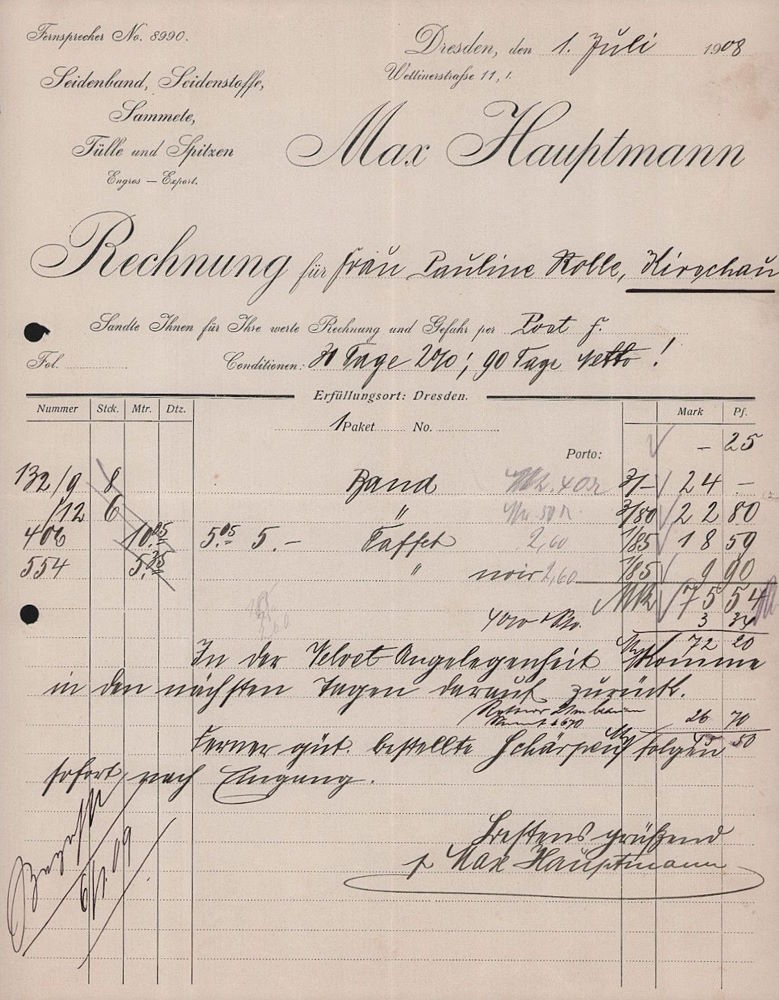 Fernsprecher No. 8990.
Dresden, den 1. Juli 1908
Wettinerstraße 11, I.
Seidenband, Seidenstoffe,
Sammete,
Tülle und Spitzen
Engros — Export.
Max Hauptmann
Rechnung für Frau Pauline Rolle, Kirschau
Sandte Ihnen für Ihre werte Rechnung und Gefahr per Post f.
Fol. Conditionen: 30 Tage 2%; 90 Tage netto!
Erfüllungsort: Dresden.
Nummer Stck. Mtr. Dtz. 1 Paket No. Mark Pf.
Porto: – 25
132/9 8 Band 3/– 24 –
/12 6 " 3/80 22 80
406 10.05 5.05 5.– Taffet 2,60 1/85 18 59
554 5.35 " noir 2,60 1/85 9 90
Mk 75 54
4% 3 34
72 20
In der Velvet-Angelegenheit komme
in den nächsten Tagen darauf zurück.
26 70
Ferner güt. bestellte Schärpen folgen
45 50
sofort nach Eingang.
Bestens grüßend
p Max Hauptmann
6/1.09